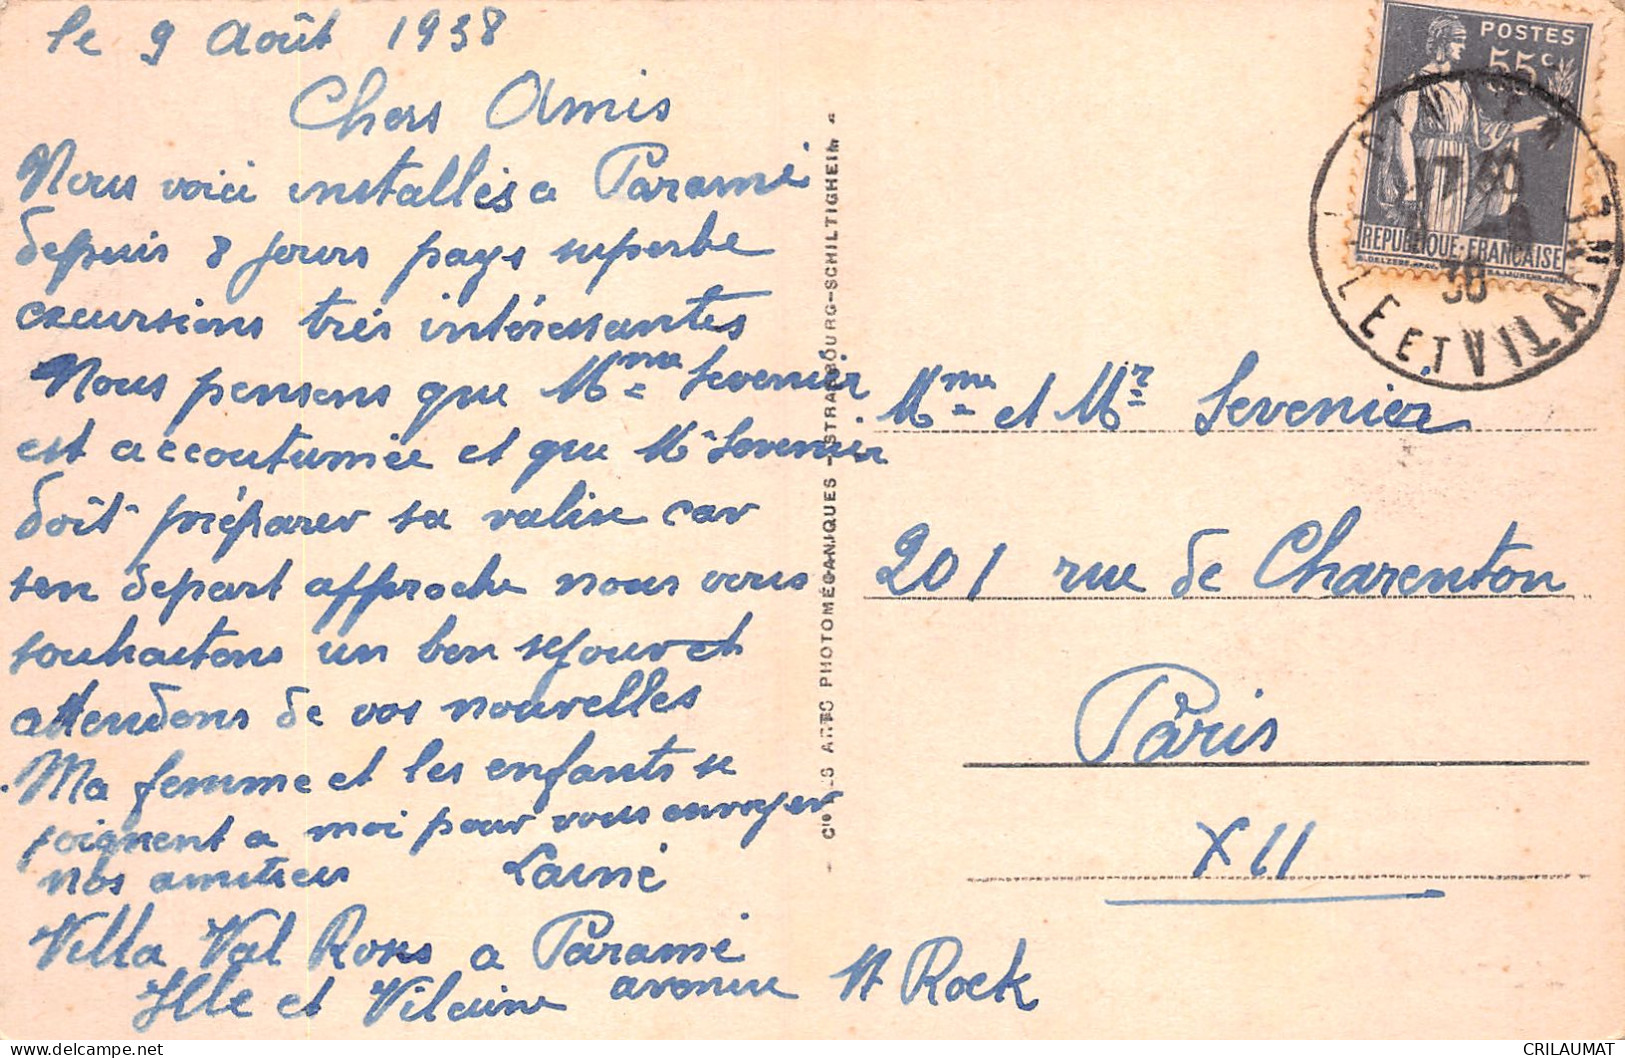 le 9 Août 1938
Chers Amis
Nous voici installés a Paramé
depuis 8 jours pays superbe
excursions très intéressantes
Nous pensons que Mme Sevenier
est accoutumée et que Mr Sevenier
doit préparer sa valise car
son depart approche nous vous
souhaitons un bon sejour et
attendons de vos nouvelles
Ma femme et les enfants se
joignent a moi pour vous envoyer
nos amitiés Lainé
Villa Val Roks a Paramé
Ille et Vilaine avenue St Rock
Cie DES ARTS PHOTOMÉCANIQUES - STRASBOURG-SCHILTIGHEIM
Mme et Mr Sevenier
201 rue de Charenton
Paris
XII
POSTES
55c
REPUBLIQUE·FRANÇAISE
17 30
38
ILLE ET VILAINE
CRILAUMAT